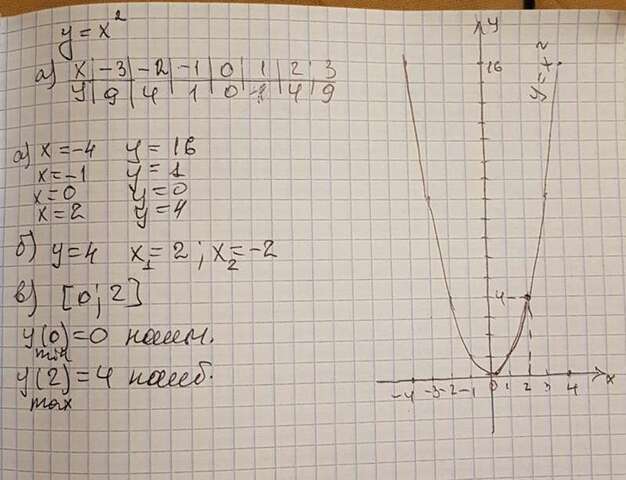 y = x²
а) x | -3 | -2 | -1 | 0 | 1 | 2 | 3
y | 9 | 4 | 1 | 0 | 1 | 4 | 9
а) x = -4 y = 16
x = -1 y = 1
x = 0 y = 0
x = 2 y = 4
б) y = 4 x₁ = 2 ; x₂ = -2
в) [0; 2]
y(0) = 0 наим.
min
y(2) = 4 наиб.
max
y
16
y = x²
4
-4 -3 -2 -1 0 1 2 3 4 x